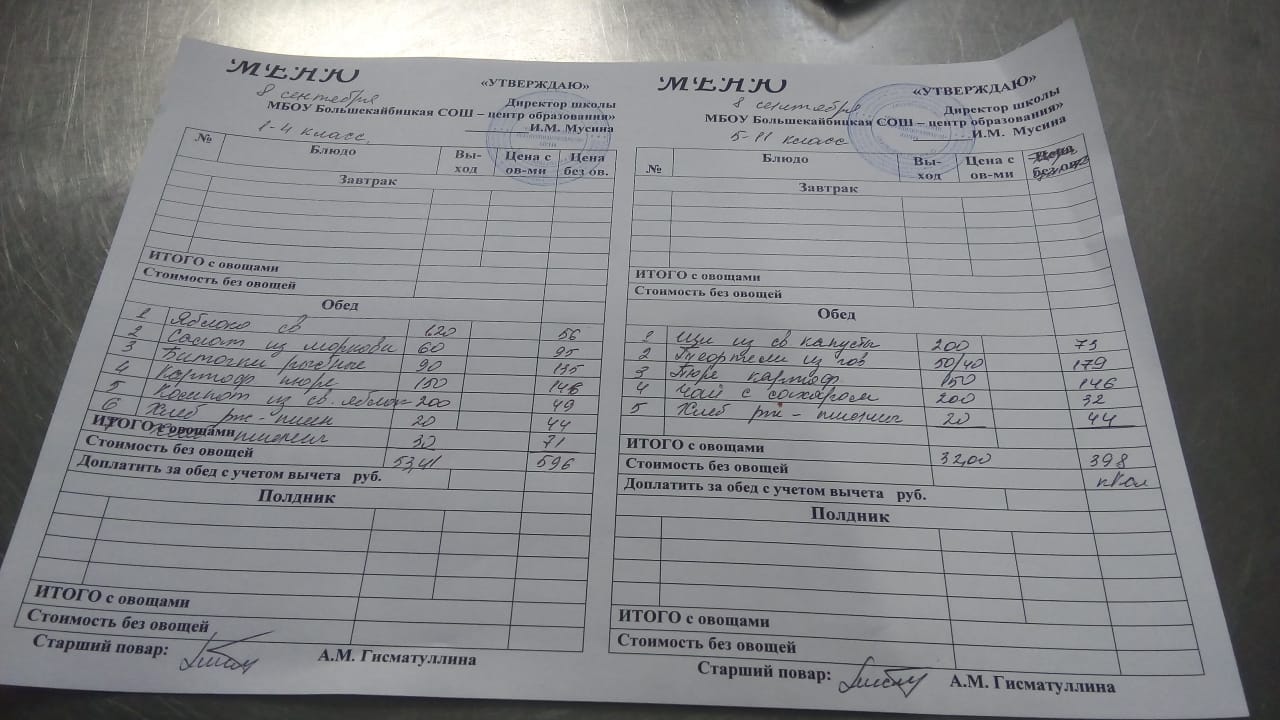 МЕНЮ
8 сентября
«УТВЕРЖДАЮ»
Директор школы
МБОУ Большекайбицкая СОШ – центр образования»
И.М. Мусина
1-4 класс
№ Блюдо Вы-ход Цена с ов-ми Цена без ов.
Завтрак
ИТОГО с овощами
Стоимость без овощей
Обед
1 Яблоко св 120 56
2 Салат из моркови 60 95
3 Биточки рыбные 90 135
4 Картоф пюре 150 146
5 Компот из св. яблок 200 49
6 Хлеб рж - пшен 20 44
ИТОГО с овощами
7 Хлеб пшенич 30 71
Стоимость без овощей 53,41 596
Доплатить за обед с учетом вычета руб.
Полдник
ИТОГО с овощами
Стоимость без овощей
Старший повар: А.М. Гисматуллина
МЕНЮ
8 сентября
«УТВЕРЖДАЮ»
Директор школы
МБОУ Большекайбицкая СОШ – центр образования»
И.М. Мусина
5-11 класс
№ Блюдо Вы-ход Цена с ов-ми Цена без ов.
Завтрак
ИТОГО с овощами
Стоимость без овощей
Обед
1 Щи из св капусты 200 73
2 из гов 50/40 179
3 Пюре картоф 150 146
4 Чай с сахаром 200 32
5 Хлеб рж - пшенич 20 44
ИТОГО с овощами
Стоимость без овощей 32,00 398
кКал
Доплатить за обед с учетом вычета руб.
Полдник
ИТОГО с овощами
Стоимость без овощей
Старший повар: А.М. Гисматуллина